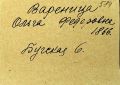 Вареница 574
Ольга Федоровна
1866.
Бугская 6.